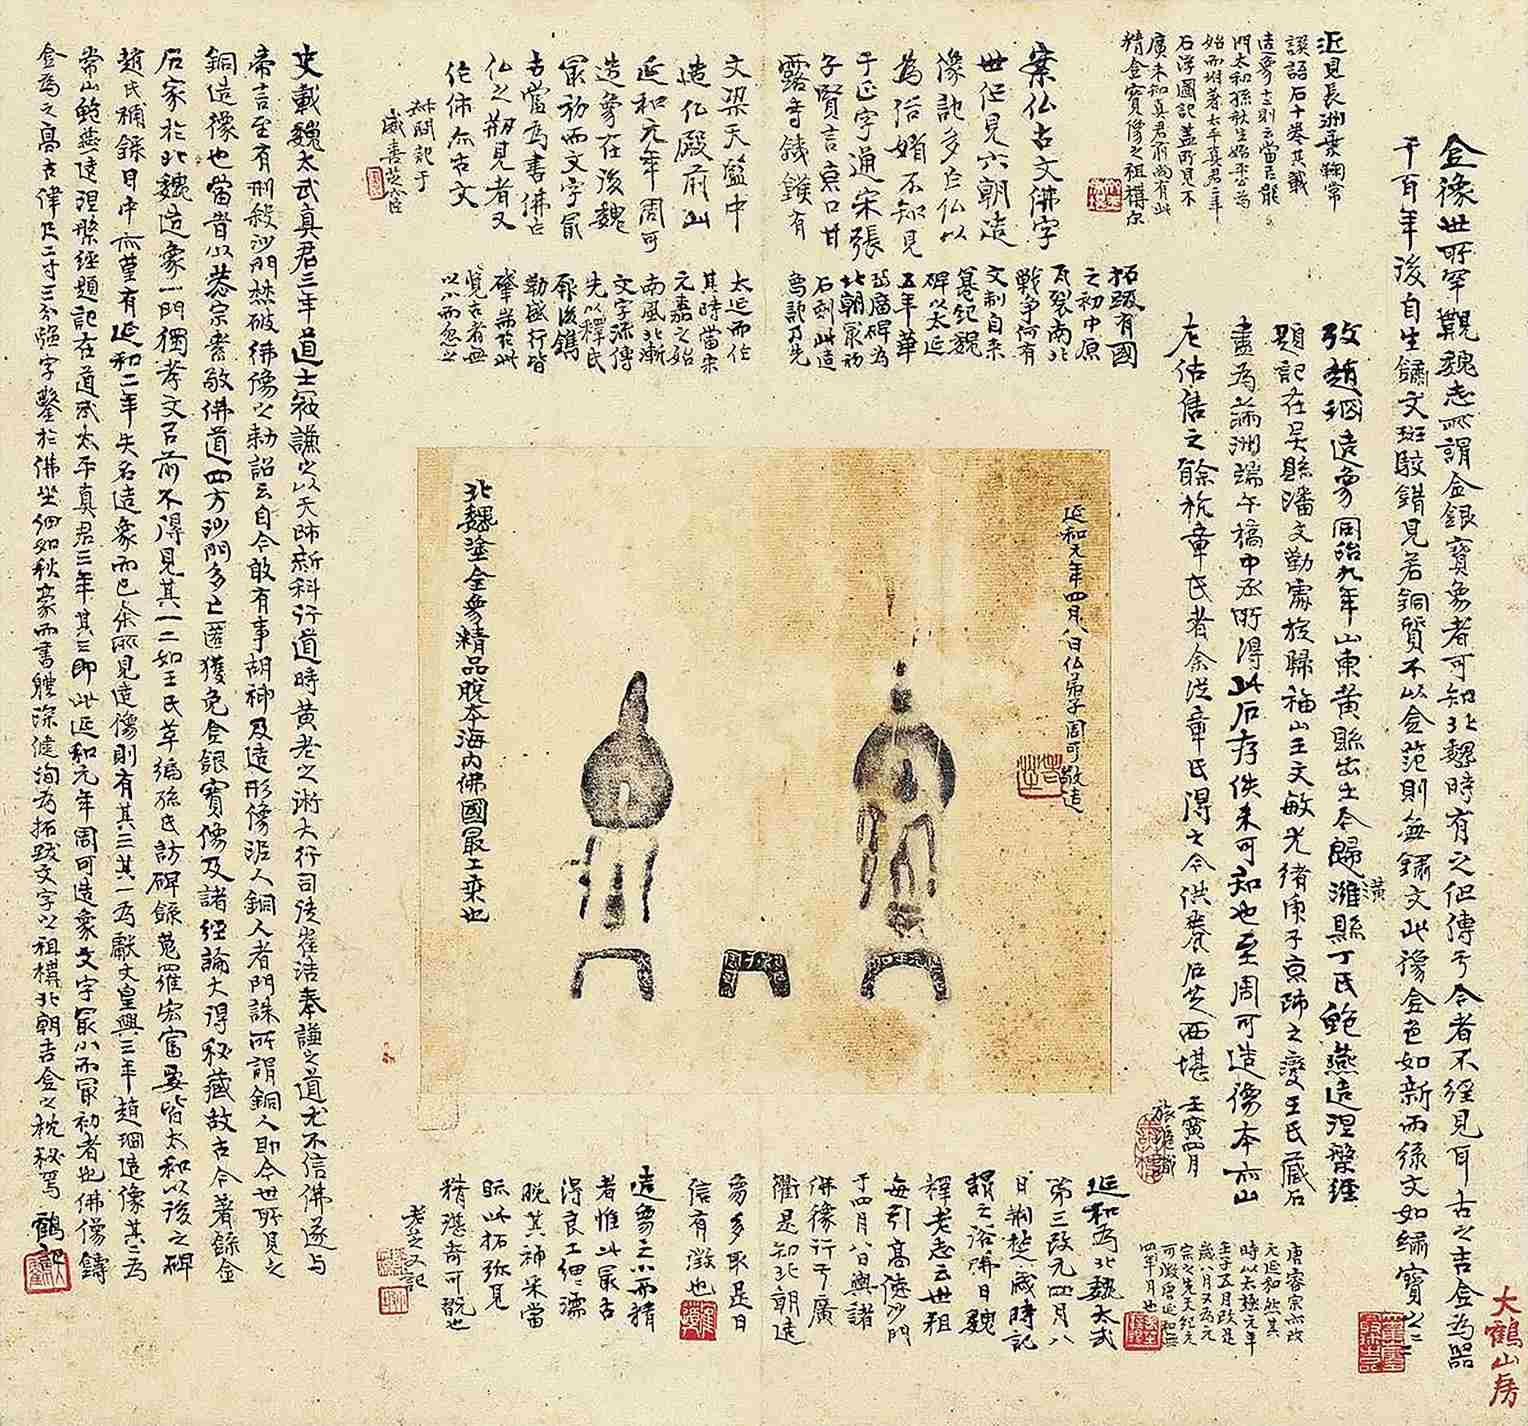 金像世所罕觏魏志所謂金銀寶象者可知北魏時有之但傳于今者不經見耳古之吉金為器
千百年後自生鏽文斑駁錯見若銅質不以金范則無鏽文此像金色如新而綠文如繡寶之二二
攷趙珊造象同治九年山東黃縣出土今歸濰縣丁氏鮑燕造涅槃經
潢
題記在吳縣潘文勤處旋歸福山王文敏光緒庚子京師之變王氏藏石
盡為滿洲端午橋中丞所得此石存佚未可知也至周可造像本亦山
左估售之餘杭章氏者余從章氏得之今供養石芝西堪
壬寅四月
近見長洲葉鞠常
譔語石十卷其載
造象十二則云當呂龍
門太和孫秋生始平公為
始而坿著太平真君三年
石浮圖記蓋所見不
廣未知真君前尚有此
精金寶像之祖稱尔
案仏古文佛字
世但見六朝造
像記多作仏以
為俗婿不知見
于正字通宋張
子賢言京口甘
露寺鐵鑊有
文梁天監中
造仏殿前此
延和元年周可
造象在後魏
冣初而文字冣
古當為書佛作
仏之朔見者又
佗佛尒古文
叔問記于
拓跋有國
之初中原
瓦裂南北
戰爭何有
文制自來
篡紀魏
碑以太延
五年華
岳廟碑為
北朝冣初
石刻此造
象記乃先
太延而作
其時當宋
元嘉之始
南風北漸
文字流傳
先以釋氏
厥後鐫
勒盛行皆
肇耑於此
覽古者毋
以小而忽之
延和元年四月八日仏弟子周可敬造
北魏塗金象精品脫本海内佛國冣上乘也
延和為北魏太武
第三改元四月八
日荊楚歲時記
謂之浴佛日魏
釋老志云世祖
每引高德沙門
于四月八日輿諸
佛像行于廣
衢是知北朝造
象多取是日
信有徵也
造象之小而精
者惟此冣古
得良工細濡
脫其神采當
眎此拓弥見
精湛奇可翫也
老芝又記
唐睿宗亦改
元延和然其
時以太極元年
壬子五月改是
歲八月又為元
宗之先天紀元
可證唐延和無
四年月也
史載魏太武真君三年道士寇謙之以天師新科行道時黃老之術大行司徒崔浩奉謙之道尤不信佛遂与
帝言至有刑殺沙門焚破佛像之勅詔云自今敢有事胡神及造形像泥人銅人者門誅所謂銅人即今世所見之
銅造像也當者以恭宗素敬佛道四方沙門多亡匿獲免金銀寶像及諸經論大得秘藏故古今著錄金
石家於北魏造象一門獨孝文呂前不得見其一二如王氏萃編孫氏訪碑錄蒐羅宏富要皆太和以後之碑
趙氏補錄目中亦堇有延和二年失名造象而已余所見造像則有其三其一為獻文皇興三年趙珊造像其二為
常山鮑燕造涅槃經題記在道武太平真君三年其三即此延和元年周可造象文字冣小而冣初者也佛像鑄
金為之高古律尺二寸三分強字鑿於佛坐細如秋豪而書體深健洵為拓跋文字之祖構北朝吉金之枕秘焉
鶴記
大鶴山房